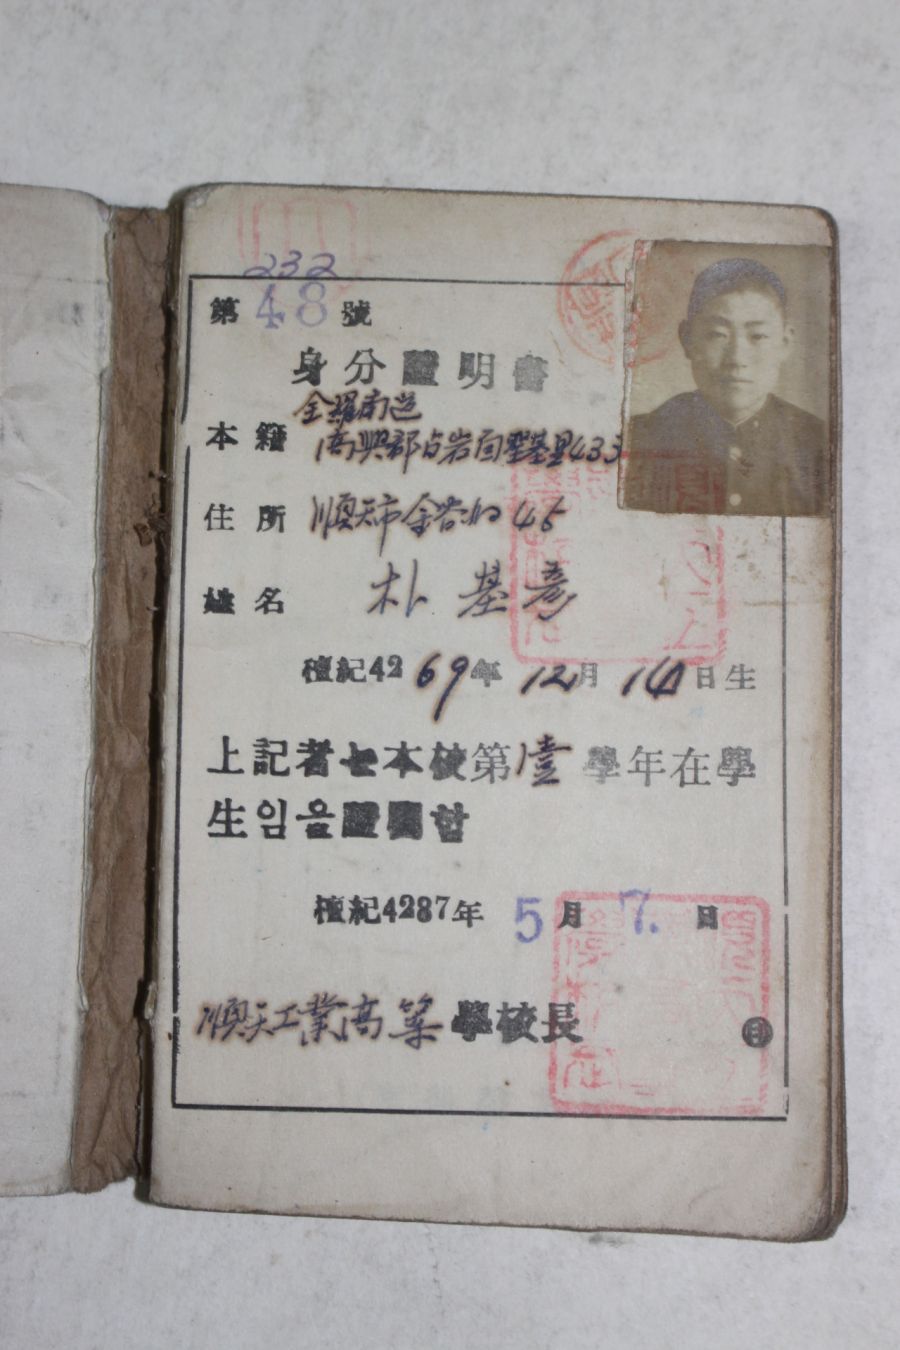 232
第 48 號
身分證明書
全羅南道
本籍 高興郡占岩面聖基里433
住所 順天市金谷洞 45
姓名 朴基彦
檀紀4269年 12月 14日生
上記者는本校第壹學年在學
生임을證明함
檀紀4287年 5月 7.日
順天工業高等學校長 印